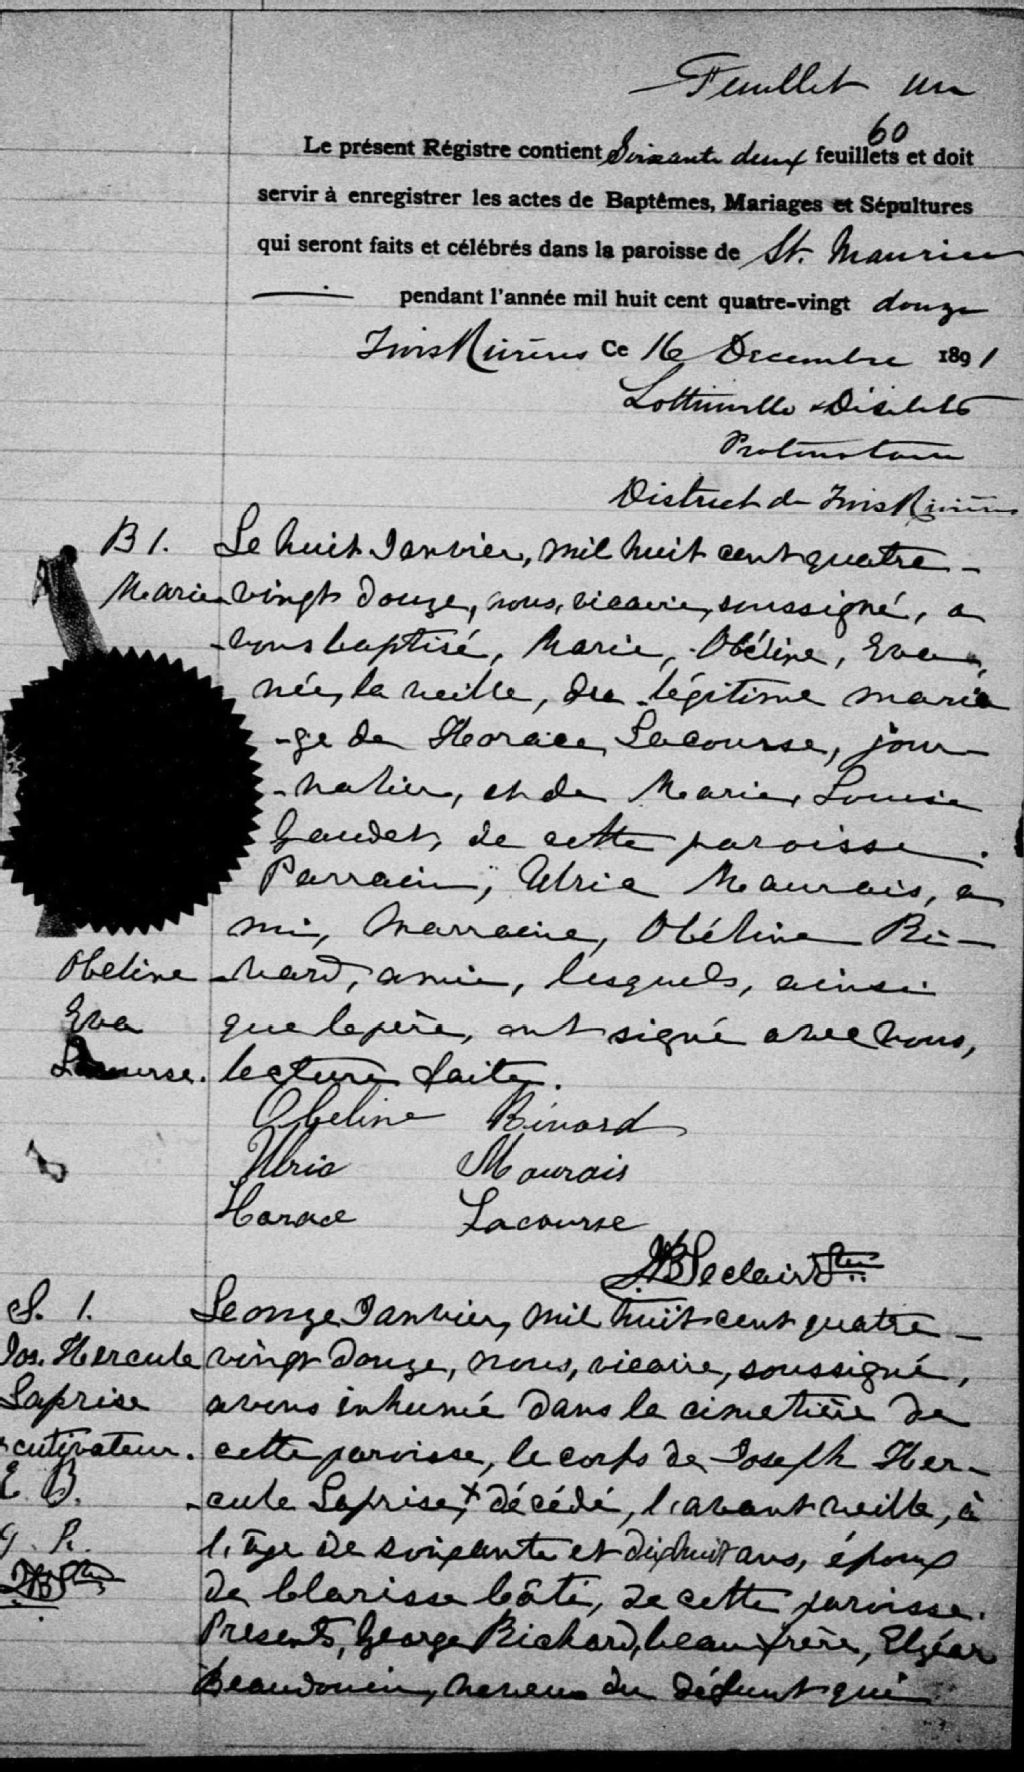 Feuillet un
60
Le présent Régistre contient Soixante deux feuillets et doit
servir à enregistrer les actes de Baptêmes, Mariages et Sépultures
qui seront faits et célébrés dans la paroisse de St. Maurice
pendant l'année mil huit cent quatre-vingt douze
Trois Rivières Ce 16 Decembre 1891
Lottinville & Désilets
Protonotaire
District de Trois Rivières
B 1. Le huit Janvier, mil huit cent quatre-
Marie vingt douze, nous, vicaire, soussigné, a
-vons baptisé, Marie, Obéline, Eva,
née, la veille, du légitime maria
-ge de Horace Lacourse, jour
-nalier, et de Marie, Louise
Gaudet, de cette paroisse.
Parrain, Ulric Maurais, a
mi, Marraine, Obéline Ri-
Obeline -vard, amie, lesquels, ainsi
Eva que le père, ont signé avec nous,
Lacourse. lecture faite.
Obeline Rivard
Ulric Maurais
Horace Lacourse
Leclair Ptre
S. 1. Le onze Janvier, mil huit cent quatre-
Jos. Hercule vingt douze, nous, vicaire, soussigné,
Laprise avons inhumé dans le cimetière de
cultivateur. cette paroisse, le corps de Joseph Her-
E. B. -cule Laprise,+ décédé, l'avant veille, à
G. R. l'âge de soixante et dixhuit ans, époux
de Clarisse Côté, de cette paroisse.
Présents, George Richard, beaufrère, Elzéar
Beaudouin, neveu du défunt qui